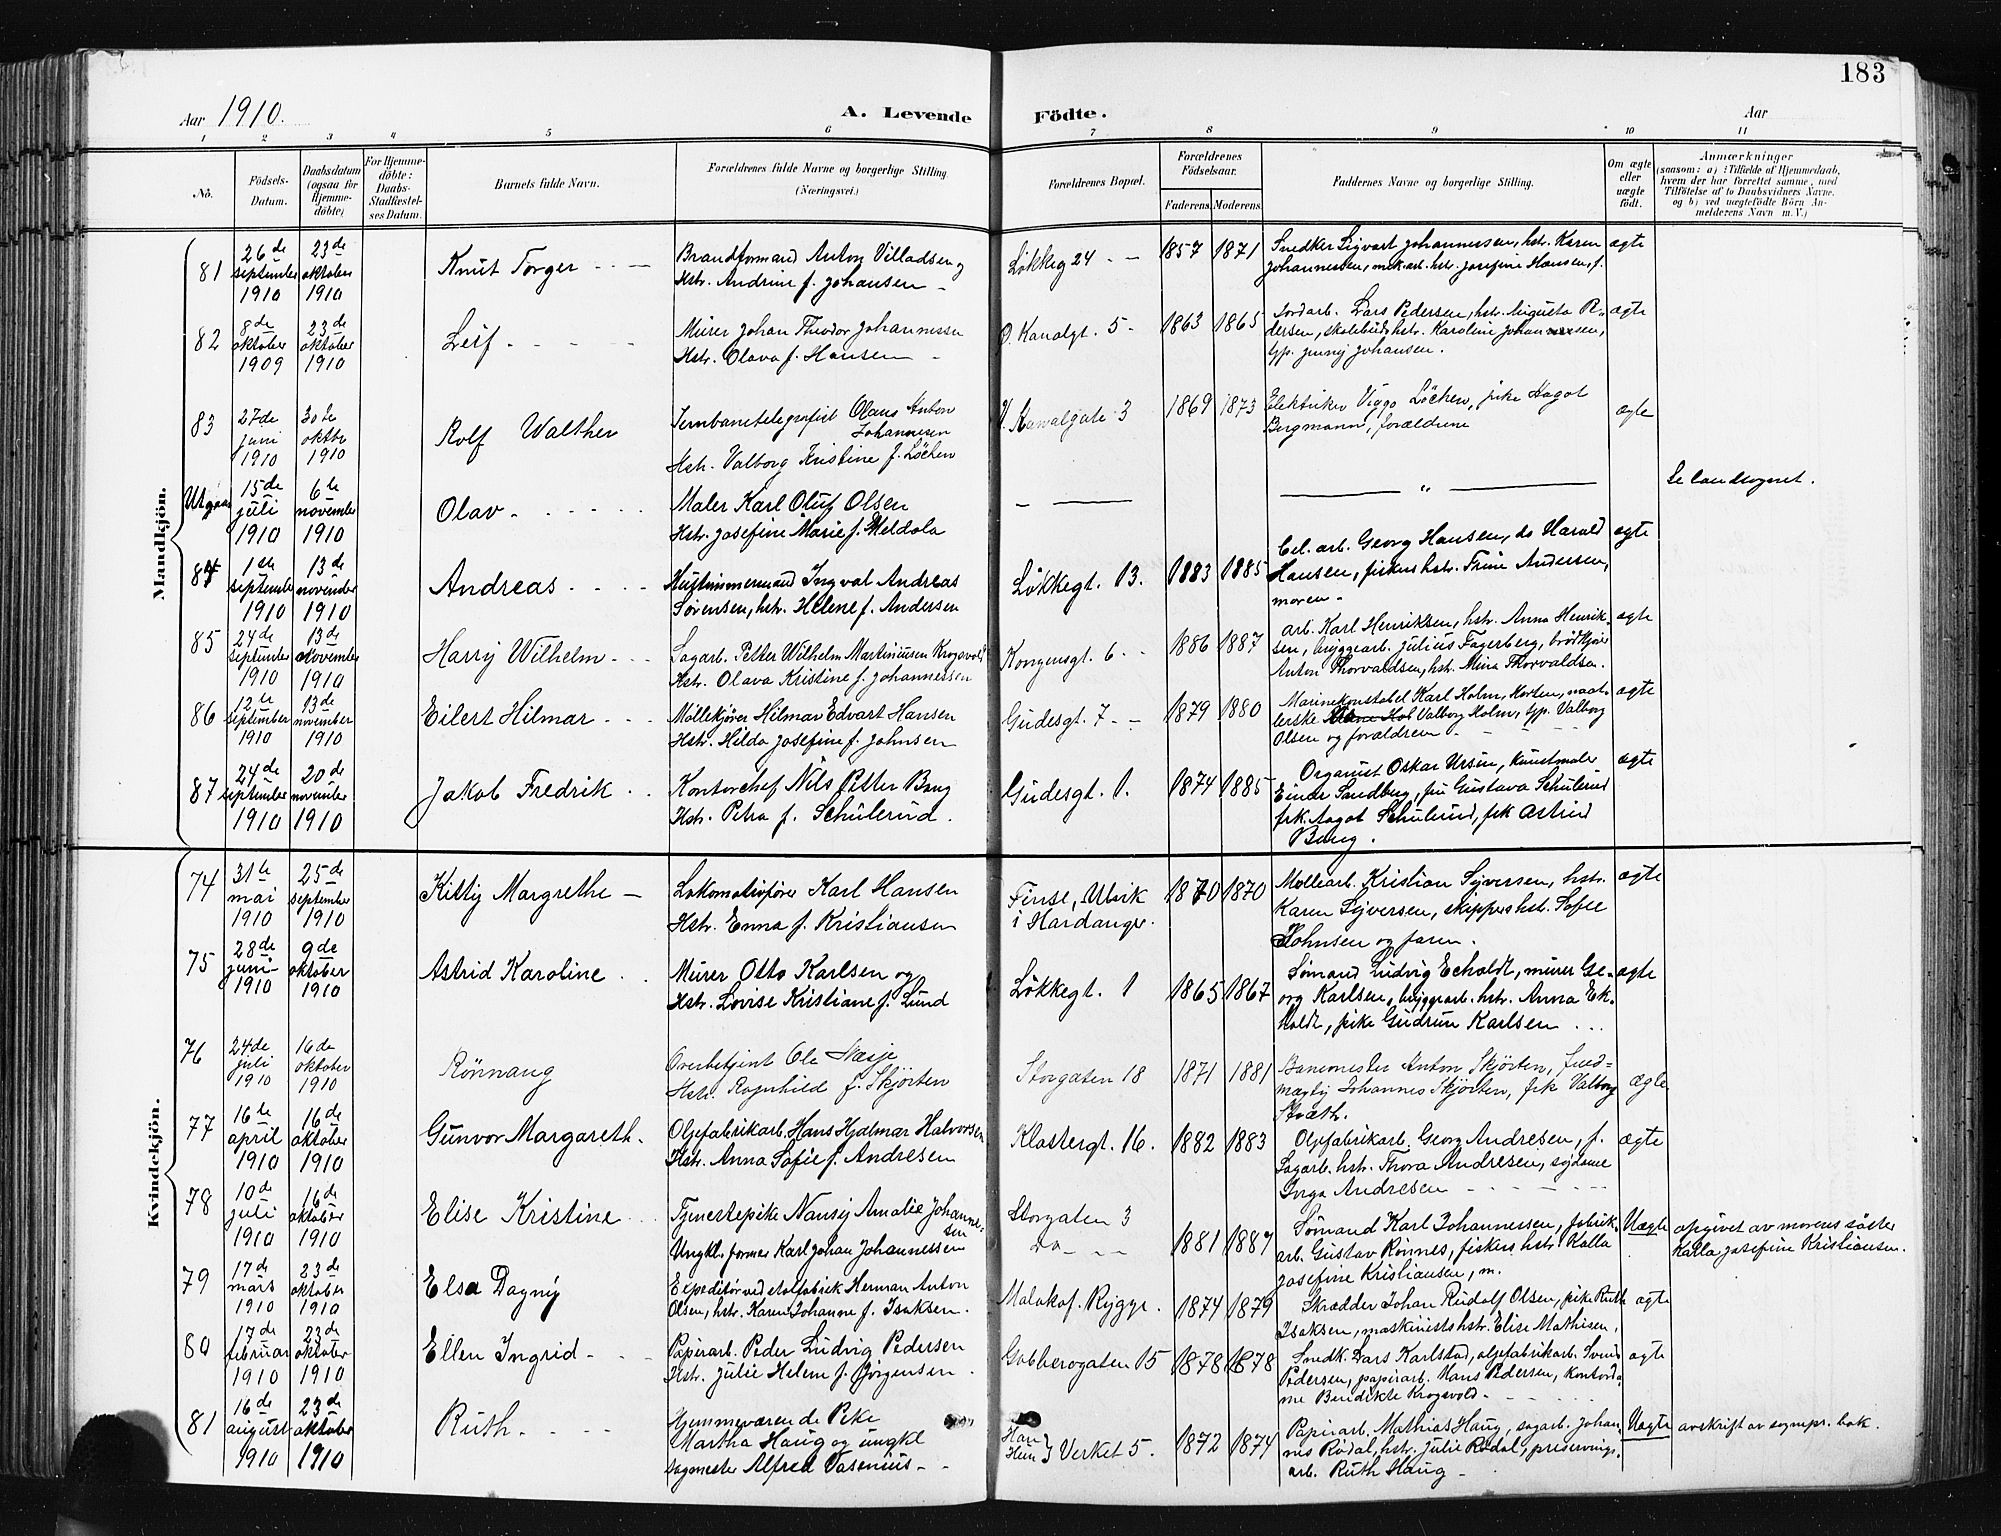 183
Aar 1910.
A. Levende Födte.
Aar
1 2 3 4 5 6 7 8 9 10 11
No.
Födsels-Datum.
Daabsdatum (ogsaa for Hjemmedöbte)
For Hjemmedöbte: Daabs-Stadfæstelses Datum.
Barnets fulde Navn.
Forældrenes fulde Navne og borgerlige Stilling (Næringsvei.)
Forældrenes Bopæl.
Forældrenes Födselsaar.
Faderens. Moderens.
Faddernes Navne og borgerlige Stilling.
Om ægte eller uægte födt.
Anmærkninger
(saasom: a) i Tilfælde af Hjemmedaab, hvem der har forrettet samme, med Tilföielse af to Daabsvidners Navne. og b) ved uægtefödte Börn Anmelderens Navn m. V.)
Mandkjön.
81 26de september 1910 23de oktober 1910 Knut Torger Brandformand Anton Villadsen og
Hstr. Andrine f. Johansen
Løkkeg 24 1857 1871 Snedker Sigvart Johannessen, hstr. Karen
Johannessen, mek.arb. hstr. Josefine Hansen, f. ægte
82 8de oktober 1909 23de oktober 1910 Leif Murer Johan Theodor Johannessen
Hstr. Olava f. Hansen
Ø. Kanalgt. 5 1863 1865 Jordarb. Lars Pedersen, hstr. Augusta Pe-
dersen, skolebuds hstr. Karoline Johannessen,
typ. Jenny Johansen. ægte
83 27de juni 1910 30te oktbr 1910 Rolf Walther Jernbanetelegrafist Olaus Anton
Johannesen
Hstr. Valborg Kristine f. Løchen
V. Kanalgate 3 1869 1873 Elektriker Viggo Løchen, pike Aagot
Bergmann, forældrene ægte
Utgaar 15de juli 1910 6te november 1910 Olav Maler Karl Oluf Olsen
Hstr. Josefine Marie f. Meldola
"
Se landsognet.
84 1ste september 1910 13de november 1910 Andreas Hustømmermand Ingval Andreas
Sørensen, hstr. Helene f. Andersen
Løkkegt. 13. 1883 1885 Cel. arb. Georg Hansen, do Harald
Hansen, fiskers hstr. Trine Andersen,
moren ægte
85 24de september 1910 13de november 1910 Harry Wilhelm Sagarb. Petter Wilhelm Martinusen Krogsvold
Hstr. Olava Kristine f. Johannessen
Kongensgt. 6 1886 1887 Arb. Karl Henriksen, hstr. Anna Henrik
sen, bryggearb. Julius Fagerberg, brødkjører
Anton Thorvaldsen, hstr. Mina Thorvaldsen. ægte
86 12te september 1910 13de november 1910 Eilert Hilmar Møllekjører Hilmar Edvart Hansen
Hstr. Hilda Josefine f. Johnsen
Gudesgt. 7 1879 1880 Marinekonstabel Karl Holm, Horten, naat-
lerske Valborg Holm, typ. Valborg
Olsen og forældrene ægte
87 24de september 1910 20de november 1910 Jakob Fredrik Kontorchef Nils Petter Bang
Hstr. Petra f. Schulerud.
Gudesgt. 1. 1874 1885 Organist Oskar Ursin, kunstmaler
Einar Sandberg, fru Gustava Schulerud
frk. Aagot Schulerud, frk Astrid
Bang. ægte
Kvindekjön.
74 31te mai 1910 25de september 1910 Kitty Margrethe Lokomotivfører Karl Hansen
Hstr. Enna f. Kristiansen
Finse, Ulvik
i Hardanger. 1870 1870 Møllearb. Kristian Syversen, hstr.
Karen Syversen, skippers hstr. Sofie
Johnsen og faren. ægte
75 28de juni 1910 9de oktober 1910 Astrid Karoline Murer Otto Karlsen og
Hstr. Lovise Kristiane f. Lund
Løkkegt. 1 1865 1867 Sømand Ludvig Echoldt, murer Ge-
org Karlsen, bryggearb. hstr. Anna Ek-
holdt, pike Gudrun Karlsen ægte
76 24de juli 1910 16de oktober 1910 Rønnaug Overbetjent Ole Næsje
Hstr. Ragnhild f. Skjörten
Storgaten 18 1871 1881 Banemester Anton Skjörten, fuld-
mægtig Johannes Skjörten, frk Valborg
Stræth. ægte
77 16de april 1910 16de oktober 1910 Gunvor Margareth Oljefabrikarb. Hans Hjalmar Halvorsen
Hstr. Anna Sofie f. Andresen
Klostergt. 16. 1882 1883 Oljefabrikarb. Georg Andresen, f.
Sagarb. hstr. Thora Andresen, sydame
Inga Andresen ægte
78 10de juli 1910 16de oktober 1910 Elise Kristine Tjenestepike Nansy Amalie Johanne-
sen
Ungkl. former Karl Johan Johannessen
Storgaten 3
Do 1881 1887 Sømand Karl Johannessen, fabrik-
arb. Gustav Rønnes, fiskers hstr. Kalla
Josefine Kristiansen, m. Uægte opgivet av morens søster
Kalla Josefine Kristiansen.
79 17de mars 1910 23de oktober 1910 Elsa Dagny Expeditør ved stolfabrik Herman Anton
Olsen, hstr. Karen Johanne f. Isaksen.
Malakof. Ryggr. 1874 1879 Skrædder Johan Rudolf Olsen, pike Ruth
Isaksen, maskinists hstr. Elise Mathisen. ægte
80 17de februar 1910 23de oktober 1910 Ellen Ingrid Papirarb. Peder Ludvig Pedersen
Hstr. Julie Helene f. Jørgensen.
Gabberogaten 15 1878 1878 Snedk. Lars Karlstad, oljefabrikarb. Svend
Pedersen, papirarb. Hans Pedersen, kontorda-
me Bendikte Krogsvold ægte
81 16de august 1910 23de oktober 1910 Ruth Hjemmeværende Pike
Martha Haug og ungkl
sagmester Alfred Vasenius
Han
Hun } Verket 5. 1872 1874 Papirarb. Mathias Haug, sagarb. Johan-
nes Rødal, hstr. Julie Rødal, preservings-
arb. Ruth Haug Uægte avskrift av sognepr. bok.